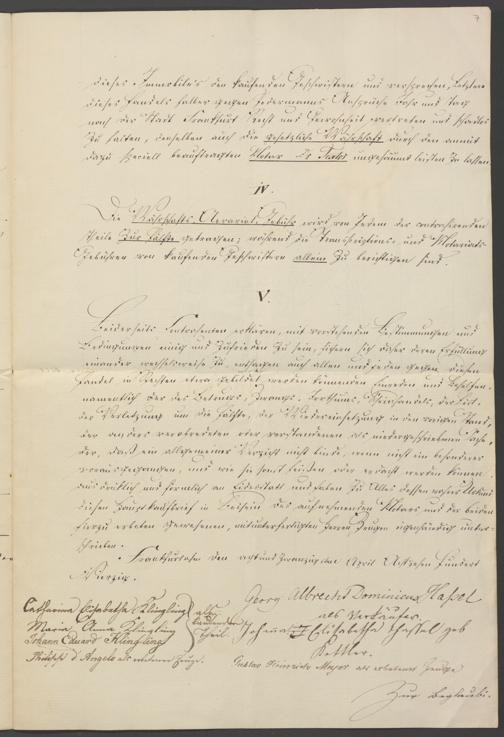 7
dieses Immobile's den kaufenden Geschwistern und versprechen, Letztere
dieses Handels halber gegen Jedermanns Ansprüche Jahr und Tag
nach der Stadt Frankfurt Recht und Gewohnheit vertreten und schadlos
zu halten, denselben auch die gesetzliche Währschaft durch den anmit
dazu speciell beauftragten Notar Dr. ungesäumt leisten zu lassen.
IV.
Die Währschafts-Aerarial-Gebühr wird von Jedem der contrahirenden
Theile zur Hälfte getragen; während die Transscriptions- und Notariats-
Gebühren von kaufenden Geschwistern allein zu berichtigen sind.
V.
Beiderseits Contrahenten erklären, mit vorstehenden Bestimmungen und
Bedingungen einig und zufrieden zu sein, sichern sich daher deren Erfüllung
einander wechselsweise zu, entsagen auch allen und jeden gegen diesen
Handel in Rechten etwa gebildet werden könnenden Einreden und Behelfen,
namentlich der des Betrugs, Zwangs, Irrthums, Scheinhandels, der List,
der Verletzung um die Hälfte, der Wiedereinsetzung in den vorigen Stand,
der anders verabredeten oder verstandenen als niedergeschriebenen Sache,
der, daß ein allgemeiner Verzicht nicht binde, wenn nicht ein besonderer
vorausgegangen, und wie sie sonst heißen oder erdacht werden können
ausdrücklich und förmlich an Eidesstatt und haben zu Alles dessen wahrer Urkund
diesen Hauptkaufbrief in Beisein des aufnehmenden Notars und der beiden
hierzu erbeten gewesenen, mitunterfertigten Herren Zeugen eigenhändig unter-
schrieben.
Frankfurt den achtundzwanzigsten April Achtzehn Hundert
Vierzig.
Catharina Elisabetha Klingling
Maria Anna Klingling
Johann Eduard Klingling
als kaufender Theil.
d'Angelo als erbetener Zeuge.
Georg Albrecht Dominicus Hassel
als Verkäufer.
Johanna Elisabetha Hassel geb
Kettler.
Gustav Heinrich Mayer als erbetener Zeuge
Zur Beglaubi-